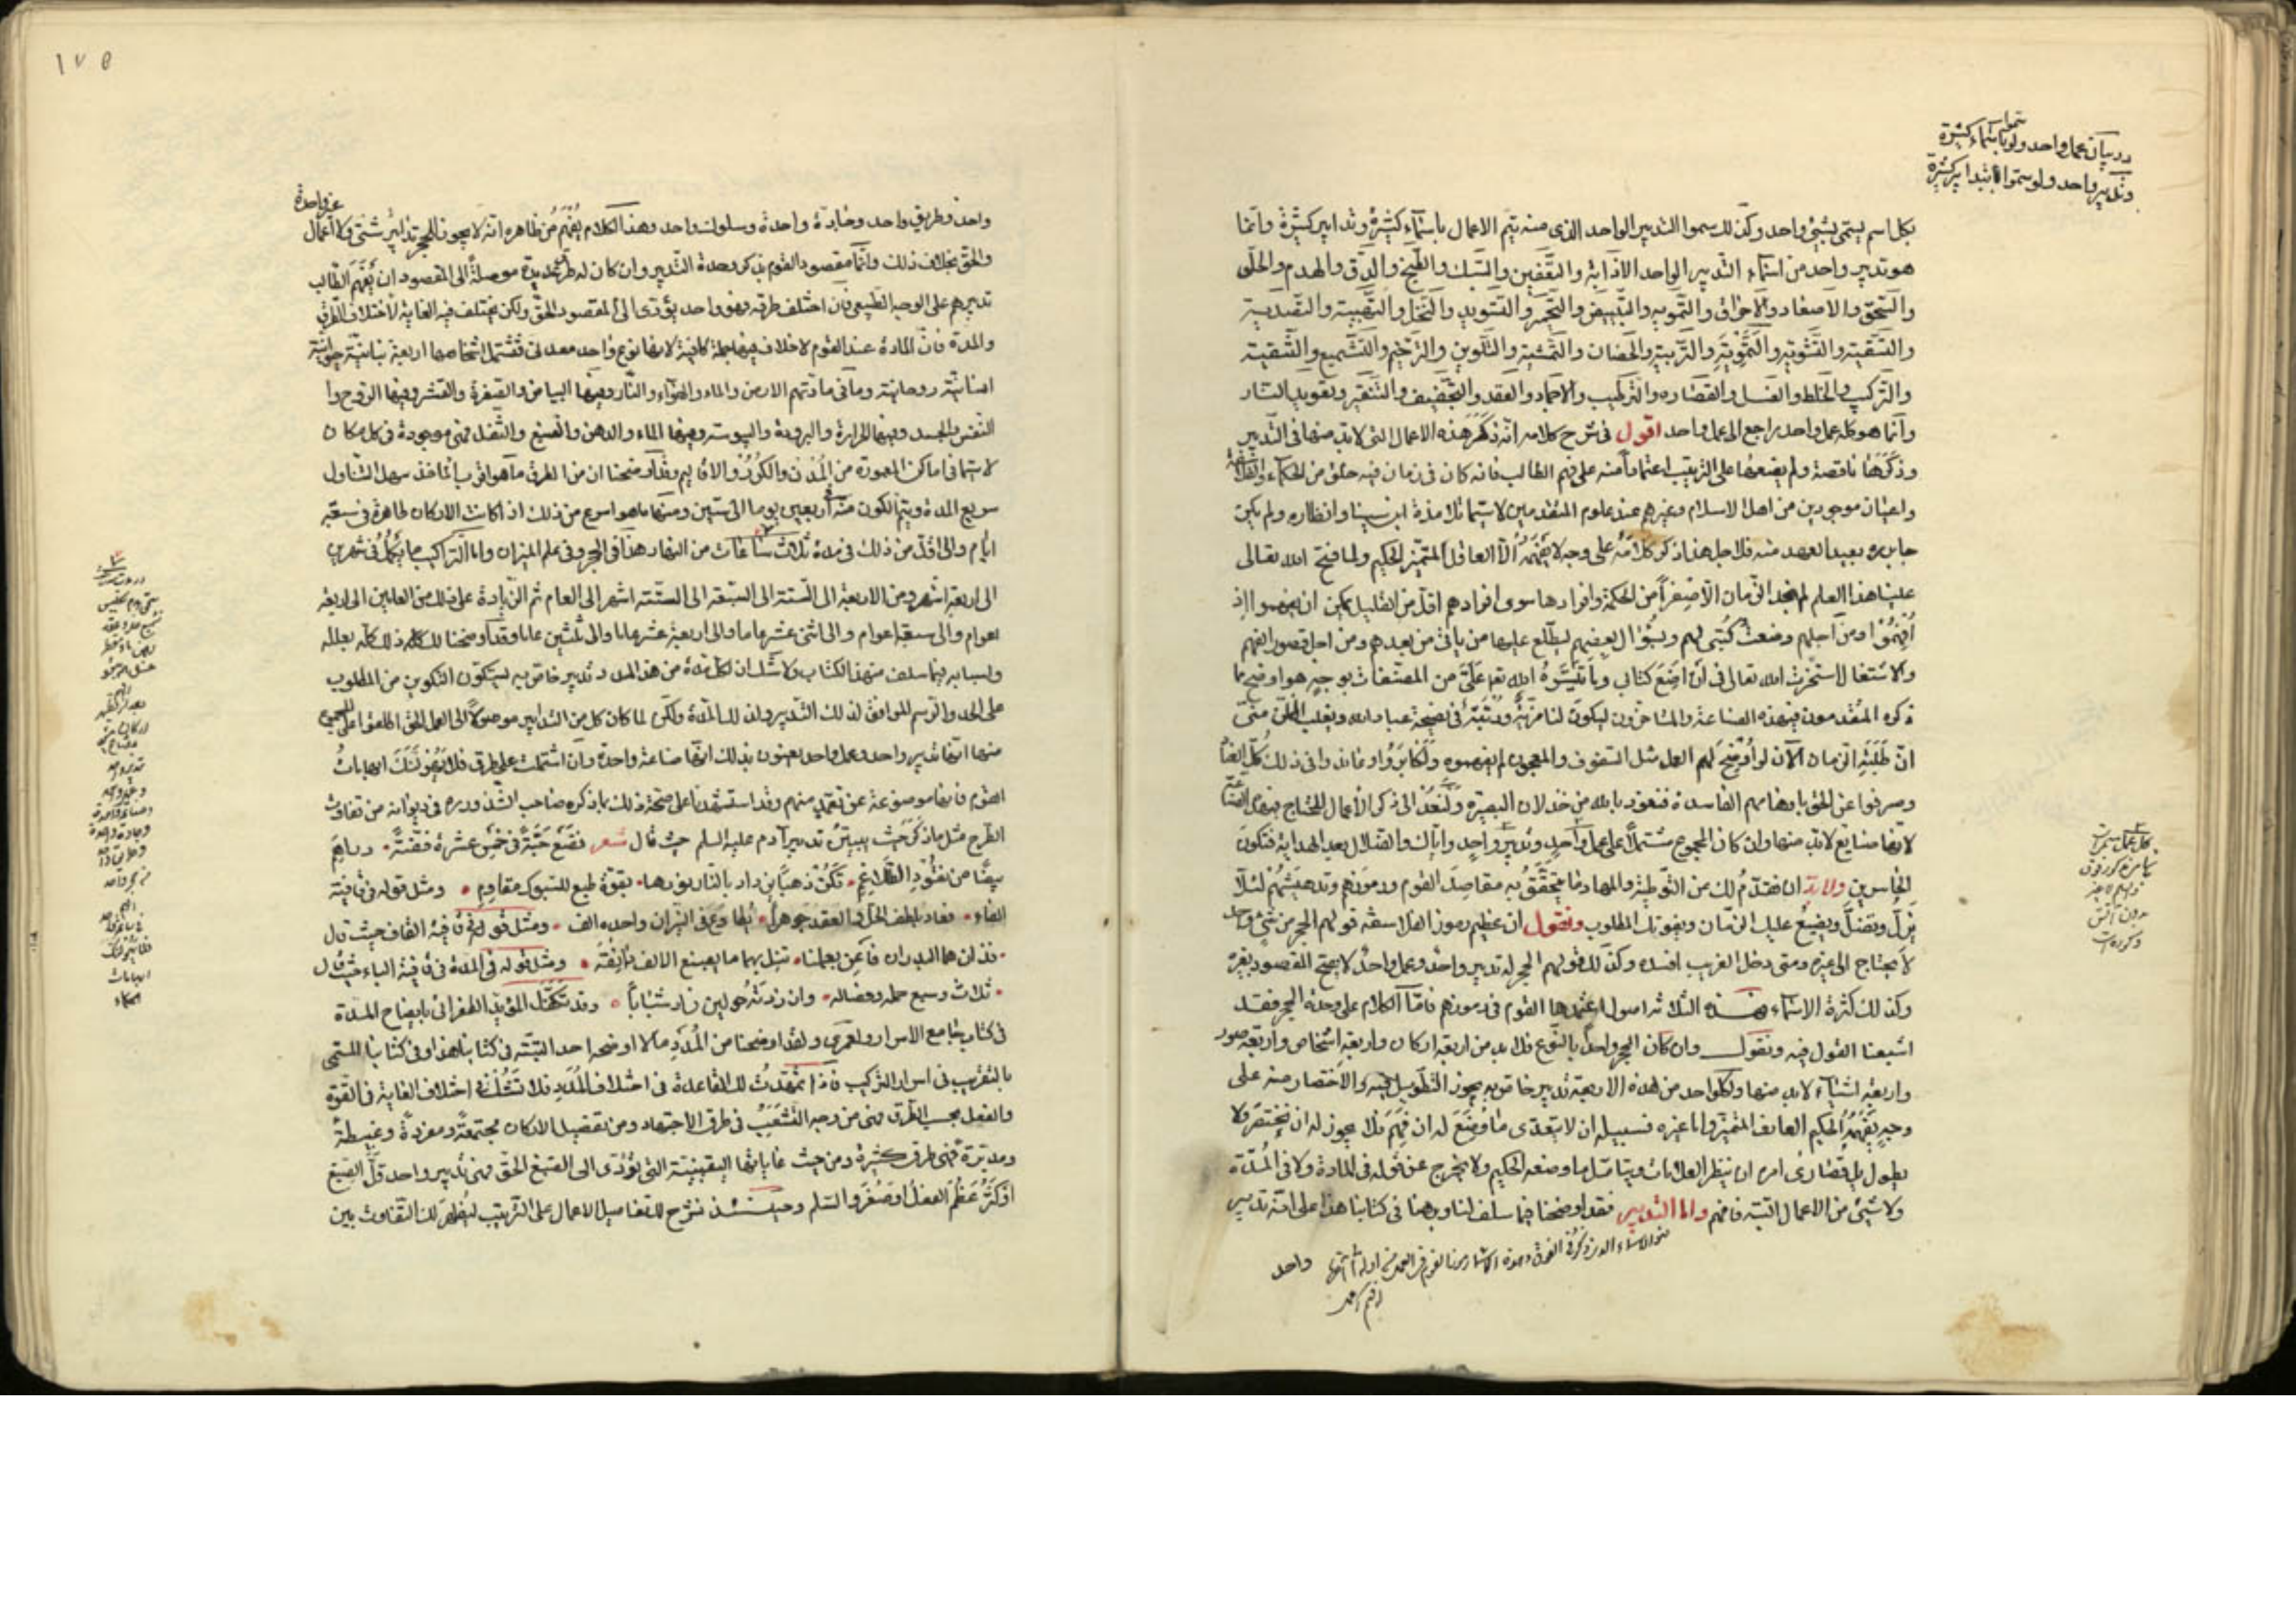 در بيان عمل واحد ولو سموا باسماء كثيرة
وتدبير واحد ولو سموا بتدابير كثيرة
بكل اسم يسمى بشئ واحد وكذلك سموا التدبير الواحد الذى منه يتم الاعمال باسماء كثيرة وتدابير كثيرة وانما
هو تدبير واحد من اسماء التدبير الواحد الاذابة والتعفين والسبك والطبخ والدق والهدم والحل
والسحق والاصعاد والاحراق والتمويه والتبييض والتحمير والتسويد والنخل والتهبية والتصدية
والتسقية والتشوية والتربية والحضان والتمشية والتلوين والترخيم والتشميع والتنقية
والتركيب والخلط والغسل والقصاره والترطيب والاجماد والعقد والتجفيف والتقطير وتقويد النار
وانما هو كله عمل واحد يراجع الى عمل واحد اقول فى شرح كلامه انه ذكر هذه الاعمال التى لا بد منها فى التدبير
وذكرها ناقصة ولم يضعها على الترتيب اعتمادا منه على فهم الطالب فانه كان فى زمان فيه خلق من الحكماء والفلاسفة
واعيان موجودين من اهل الاسلام وغيرهم عند علوم المتقدمين لا سيما تلامذة ابن سينا وانظاره ولم يكن
جابر بعيد العهد منه فلاجل هذا ذكر كلامه على وجه لا يفهمه الا العاقل المتميز الحكيم ولما فتح الله تعالى
علينا هذا العلم لم نجد الزمان الا صفرا من الحكمة وافرادها سوى افرادهم اقل من القليل يمكن ان يفهموا اذ
افهموا ومن اجلهم وضعت كتبى لهم وبسؤال بعضهم ليطلع عليها من ياتى من بعدهم ومن اجل قصور الفهم
والاشتغال استخرت الله تعالى فى ان اضع كتابى وياتيسره الله تعالى على من المصنفات بوجه هو اوضح ما
ذكره المتقدمون فى هذه الصناعة والمتاخرون ليكون لنا مزية ورتبة فى نصيحة عباد الله ويغلب الظن منى
ان طلبة الزمان الآن لو اوضح لهم العمل مثل السفوف والمعجون لم يفهموه ولكابروا وعاندوا فى ذلك كل العناد
وصرفوا عن الحق باوهامهم الفاسدة فنعوذ بالله من خذلان البصيرة ولنعد الى ذكر الاعمال المحتاج
لانها صنايع لا بد منها وان كان المجموع مشتملا على عمل واحد وتدبير واحد واياك والضلال بعد الهداية فتكون
من الخاسرين ولا بد ان نقدم لك من التوطئة والمهاد ما يتحقق به مقاصد القوم ورموزهم وتدهيشهم لئلا
تزل وتضل ويضيع عليك الزمان ويفوتك المطلوب ونقول ان عظيم رموز الفلاسفة قولهم الحجر من شئ واحد
لا يحتاج الى غيره ومتى دخل الغريب افسده وكذلك قولهم الحجر له تدبير واحد وعمل واحد لا يصح المقصود بغيره
وكذلك كثرة الاسماء فهذه الثلاثة اصول اعتمدها القوم فى رموزهم فاما الكلام على وحدة الحجر فقد
اشبعنا القول فيه ونقول وان كان الحجر واحدا بالنوع فلا بد من اربعة اركان واربعة اشخاص واربعة صور
واربعة اشياء لا بد منها ولكل واحد من هذه الاربعة تدبير خاص به يجوز التطويل فيه والاختصار منه على
وجه يفهمه الحكيم العارف المتميز واما غيره فسبيله ان لا يتعدى ما وضع له ان فهم فلا يجوز له ان يختصر ولا
يطول بل قصارى امره ان ينظر العلامات ويتامل ما وضعه الحكيم ولا يخرج عن قوله فى المادة ولا فى المدة
ولا شئ من الاعمال البتة فافهم واما التدبير فقد اوضحنا فيما سلف لنا وبهنا فى كتابنا هذا على انه تدبير
واحد
كل عمل
١٧٥
واحد وطريق واحد وجادة واحدة وسلوك واحد وهذا الكلام يفهم من ظاهره انه لا يجوز للحجر تدابير شتى ولا اعمال
غير واحدة
والحق بخلاف ذلك وانما مقصود القوم بذكر وحدة التدبير وان كان له طرق عديدة موصلة الى المقصود ان يفهم الطالب
تدبيرهم على الوجه الطبيعى فان اختلف طرقه فهو واحد يؤدى الى المقصود الحق ولكن يختلف فيه الغاية لاختلاف الطرق
والمدة فان المادة عند القوم لا خلاف فيها جملة كافية لانها نوع واحد معدنى فتشتمل اشخاصها اربعة نباتية حيوانية
انسانية روحانية وما فى مادتهم الارض والماء والهواء والنار وفيها البياض والصفرة والقشر وفيها الروح وا
لنفس والجسد وفيها الحرارة والبرودة واليبوسة وفيها الماء والدهن والصبغ والثفل فهى موجودة فى كل مكان
لا سيما فى اماكن المعمورة من المدن والكور والاقاليم وقد اوضحنا ان من الطرق ما هو قريب الماخذ سهل التناول
سريع المدة ويتم الكون منه فى اربعين يوما الى ستين ومنها ما هو اسرع من ذلك اذا كانت الاركان طاهرة فى سبعة
ايام والى اقل من ذلك فى مدة ثلاث ساعات من النهار هذا فى الحجر وفى علم الميزان واما التراكيب فما يكمل فى شهرين
الى اربعة اشهر ومن الاربعة الى الستة الى السبعة الى التسعة اشهر الى العام ثم الزيادة على ذلك من العامين الى اربعة
اعوام والى سبعة اعوام والى اثنى عشر عاما والى اربعة عشر عاما والى ثلثين عاما وقد اوضحنا لك ذلك كله بعلله
واسبابه فيما سلف من هذا الكتاب ولا شك ان لكل مدة من هذه المدد تدبير خاص به ليتكون التكوين من المطلوب
على الحد والرسم الموافق لذلك التدبير ولتلك المدة ولكن لما كان كل من التدابير موصولا الى العمل الحق اطلقوا على المجموع
منها انها تدبير واحد وعمل واحد يعنون بذلك انها صناعة واحدة وان اشتملت على طرق فلا يغرنك ايهامات
القوم فانها موضوعة عن تعمد منهم وقد استشهدنا على صحة ذلك بما ذكره صاحب الشذور ره فى ديوانه من تفاوت
الطرح مثل ما ذكر حيث يبين تدبير آدم عليه السلم حيث قال شعر نضع حبة فى خمس عشرة فضة ٠ دراهم
بيضا من نقود ٠ تكن ذهبا يزداد بالنار نورها ٠ بقوة طبع للسبوك مقاوم ٠ ومثل قوله فى قافية
الفاء ٠ فعاد بلطف الحل والعقد جوهرا ٠ يطاوع فى النيران واحده الف ٠ ومثل قوله فى قافية القاف حيث قال
٠ فذان هما البدران فاغن بعلمنا ٠ تنل بهما ما يصبغ الالف دانقه ٠ ومثل قوله فى المدة فى قافية الياء حيث قال
٠ ثلاث وسبع حمله وفصاله ٠ وان زدته حولين زاد شبابا ٠ وقد تكفل المؤيد الطغرائى بايضاح المدة
فى كتاب جامع الاسرار ولعمرى ولقد اوضحنا من المدد ما لا اوضحه احد البتة فى كتابنا هذا وفى كتابنا المسمى
بالتقريب فى اسرار التركيب فاذا تمهدت لك القاعدة فى اختلاف المدد فلا تشك فى اختلاف الغاية فى القوة
والفعل بحسب الطرق فهى من وجه التشعب فى طرق الاجتهاد ومن تفصيل الاركان مجتمعة ومفردة وغبيطة
ومدبرة فهى طرق كثيرة ومن حيث غاياتها اليقينية التى يؤدى الى الصبغ الحق فهى تدبير واحد قل الصبغ
او كثر عظم الفعل او صغر والسلم وحينئذ نشرح لك تفاصيل الاعمال على الترتيب ليظهر لك التفاوت بين